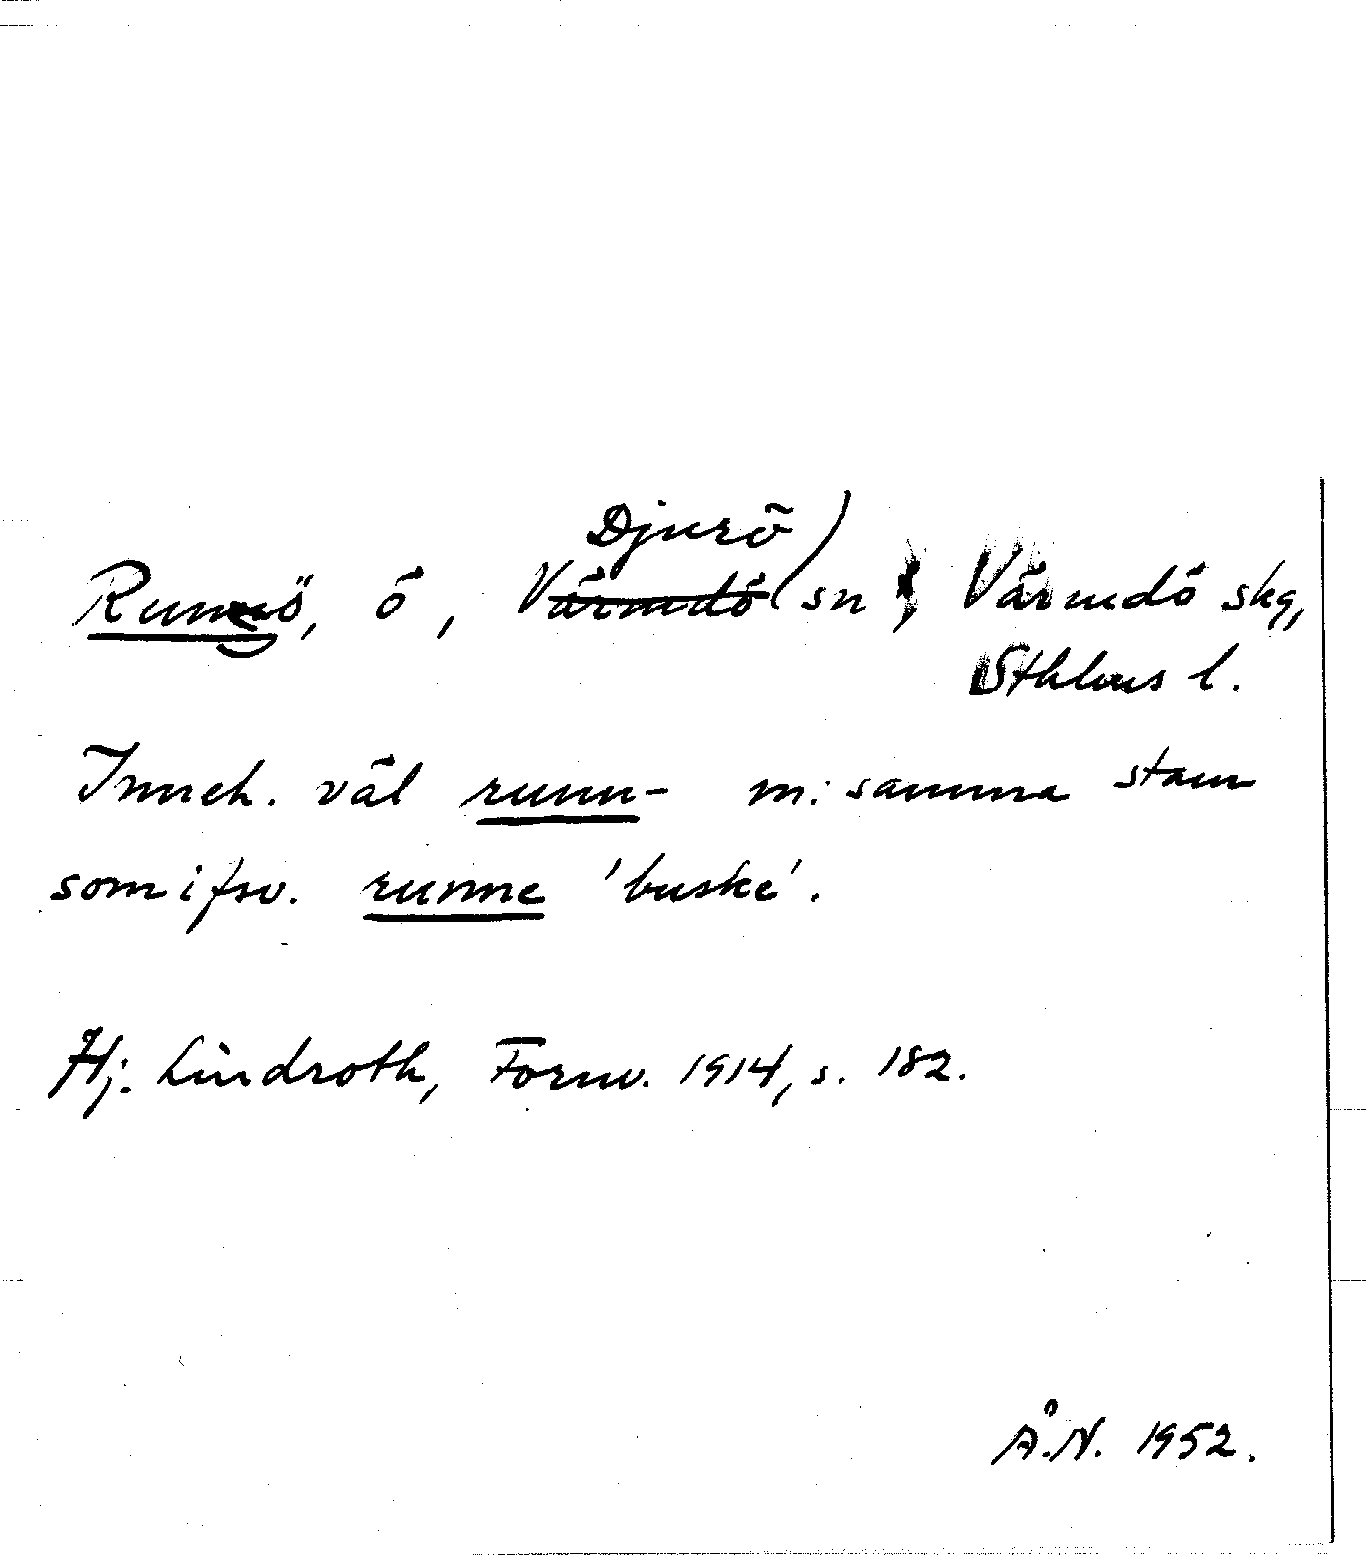 Runmarö, ö, Djurö sn, Värmdö skg,
Sthlms l.
Inneh. väl runn- m. samma stam
som i fsv. runne 'buske'.
Hj. Lindroth, Fornv. 1914, s. 182.
Å.N. 1952.